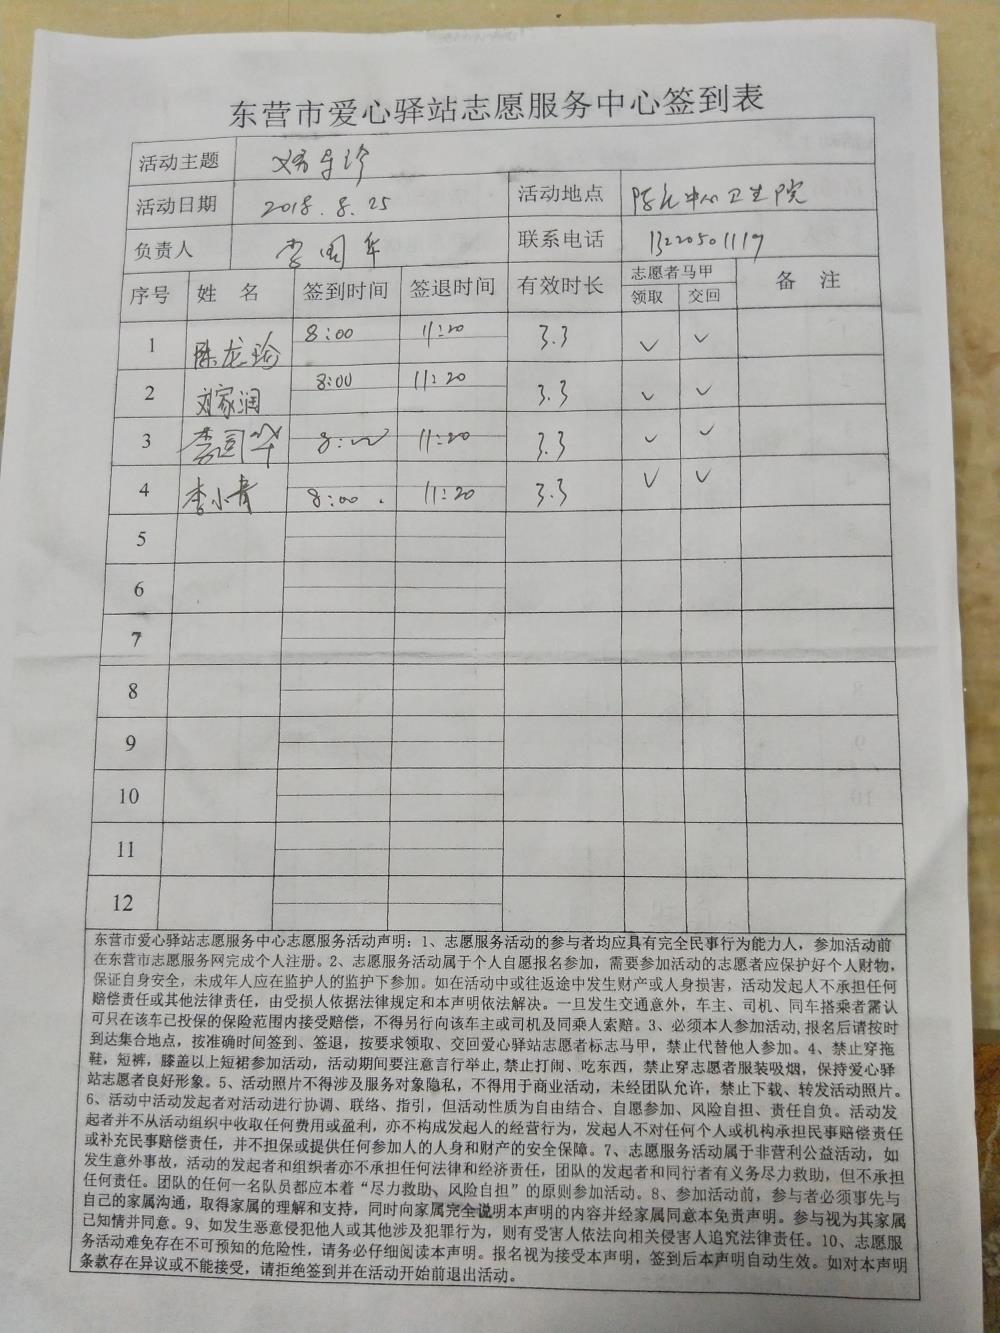 东营市爱心驿站志愿服务中心签到表
活动主题
活动日期 2018.8.25 活动地点 中心卫生院
负责人 李国华 联系电话 13220501119
序号 姓 名 签到时间 签退时间 有效时长 志愿者马甲 备 注
领取 交回
1 陈龙 8:00 11:20 3.3 ✓ ✓
2 刘家润 8:00 11:20 3.3 ✓ ✓
3 李国华 8:00 11:20 3.3 ✓ ✓
4 李小青 8:00 11:20 3.3 ✓ ✓
5
6
7
8
9
10
11
12
东营市爱心驿站志愿服务中心志愿服务活动声明：1、志愿服务活动的参与者均应具有完全民事行为能力人，参加活动前
在东营市志愿服务网完成个人注册。2、志愿服务活动属于个人自愿报名参加，需要参加活动的志愿者应保护好个人财物，
保证自身安全，未成年人应在监护人的监护下参加。如在活动中或往返途中发生财产或人身损害，活动发起人不承担任何
赔偿责任或其他法律责任，由受损人依据法律规定和本声明依法解决。一旦发生交通意外，车主、司机、同车搭乘者需认
可只在该车已投保的保险范围内接受赔偿，不得另行向该车主或司机及同乘人索赔。3、必须本人参加活动，报名后请按时
到达集合地点，按准确时间签到、签退，按要求领取、交回爱心驿站志愿者标志马甲，禁止代替他人参加。4、禁止穿拖
鞋，短裤，膝盖以上短裙参加活动，活动期间要注意言行举止，禁止打闹、吃东西，禁止穿志愿者服装吸烟，保持爱心驿
站志愿者良好形象。5、活动照片不得涉及服务对象隐私，不得用于商业活动，未经团队允许，禁止下载、转发活动照片。
6、活动中活动发起者对活动进行协调、联络、指引，但活动性质为自由结合、自愿参加、风险自担、责任自负。活动发
起者并不从活动组织中收取任何费用或盈利，亦不构成发起人的经营行为，发起人不对任何个人或机构承担民事赔偿责任
或补充民事赔偿责任，并不担保或提供任何参加人的人身和财产的安全保障。7、志愿服务活动属于非营利公益活动，如
发生意外事故，活动的发起者和组织者亦不承担任何法律和经济责任，团队的发起者和同行者有义务尽力救助，但不承担
任何责任。团队的任何一名队员都应本着“尽力救助、风险自担”的原则参加活动。8、参加活动前，参与者必须事先与
自己的家属沟通，取得家属的理解和支持，同时向家属完全说明本声明的内容并经家属同意本免责声明。参与视为其家属
已知情并同意。9、如发生恶意侵犯他人或其他涉及犯罪行为，则有受害人依法向相关侵害人追究法律责任。10、志愿服
务活动难免存在不可预知的危险性，请务必仔细阅读本声明。报名视为接受本声明，签到后本声明自动生效。如对本声明
条款存在异议或不能接受，请拒绝签到并在活动开始前退出活动。